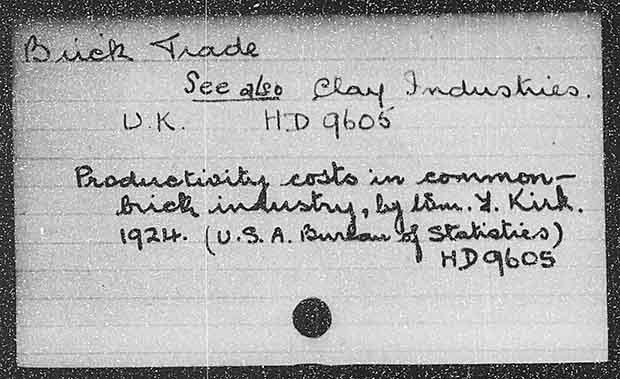 Brick Trade
See also Clay Industries.
U.K. HD 9605
Productivity costs in common-
brick industry, by Wm. F. Kirk.
1924. (U.S.A. Bureau of Statistics)
HD9605